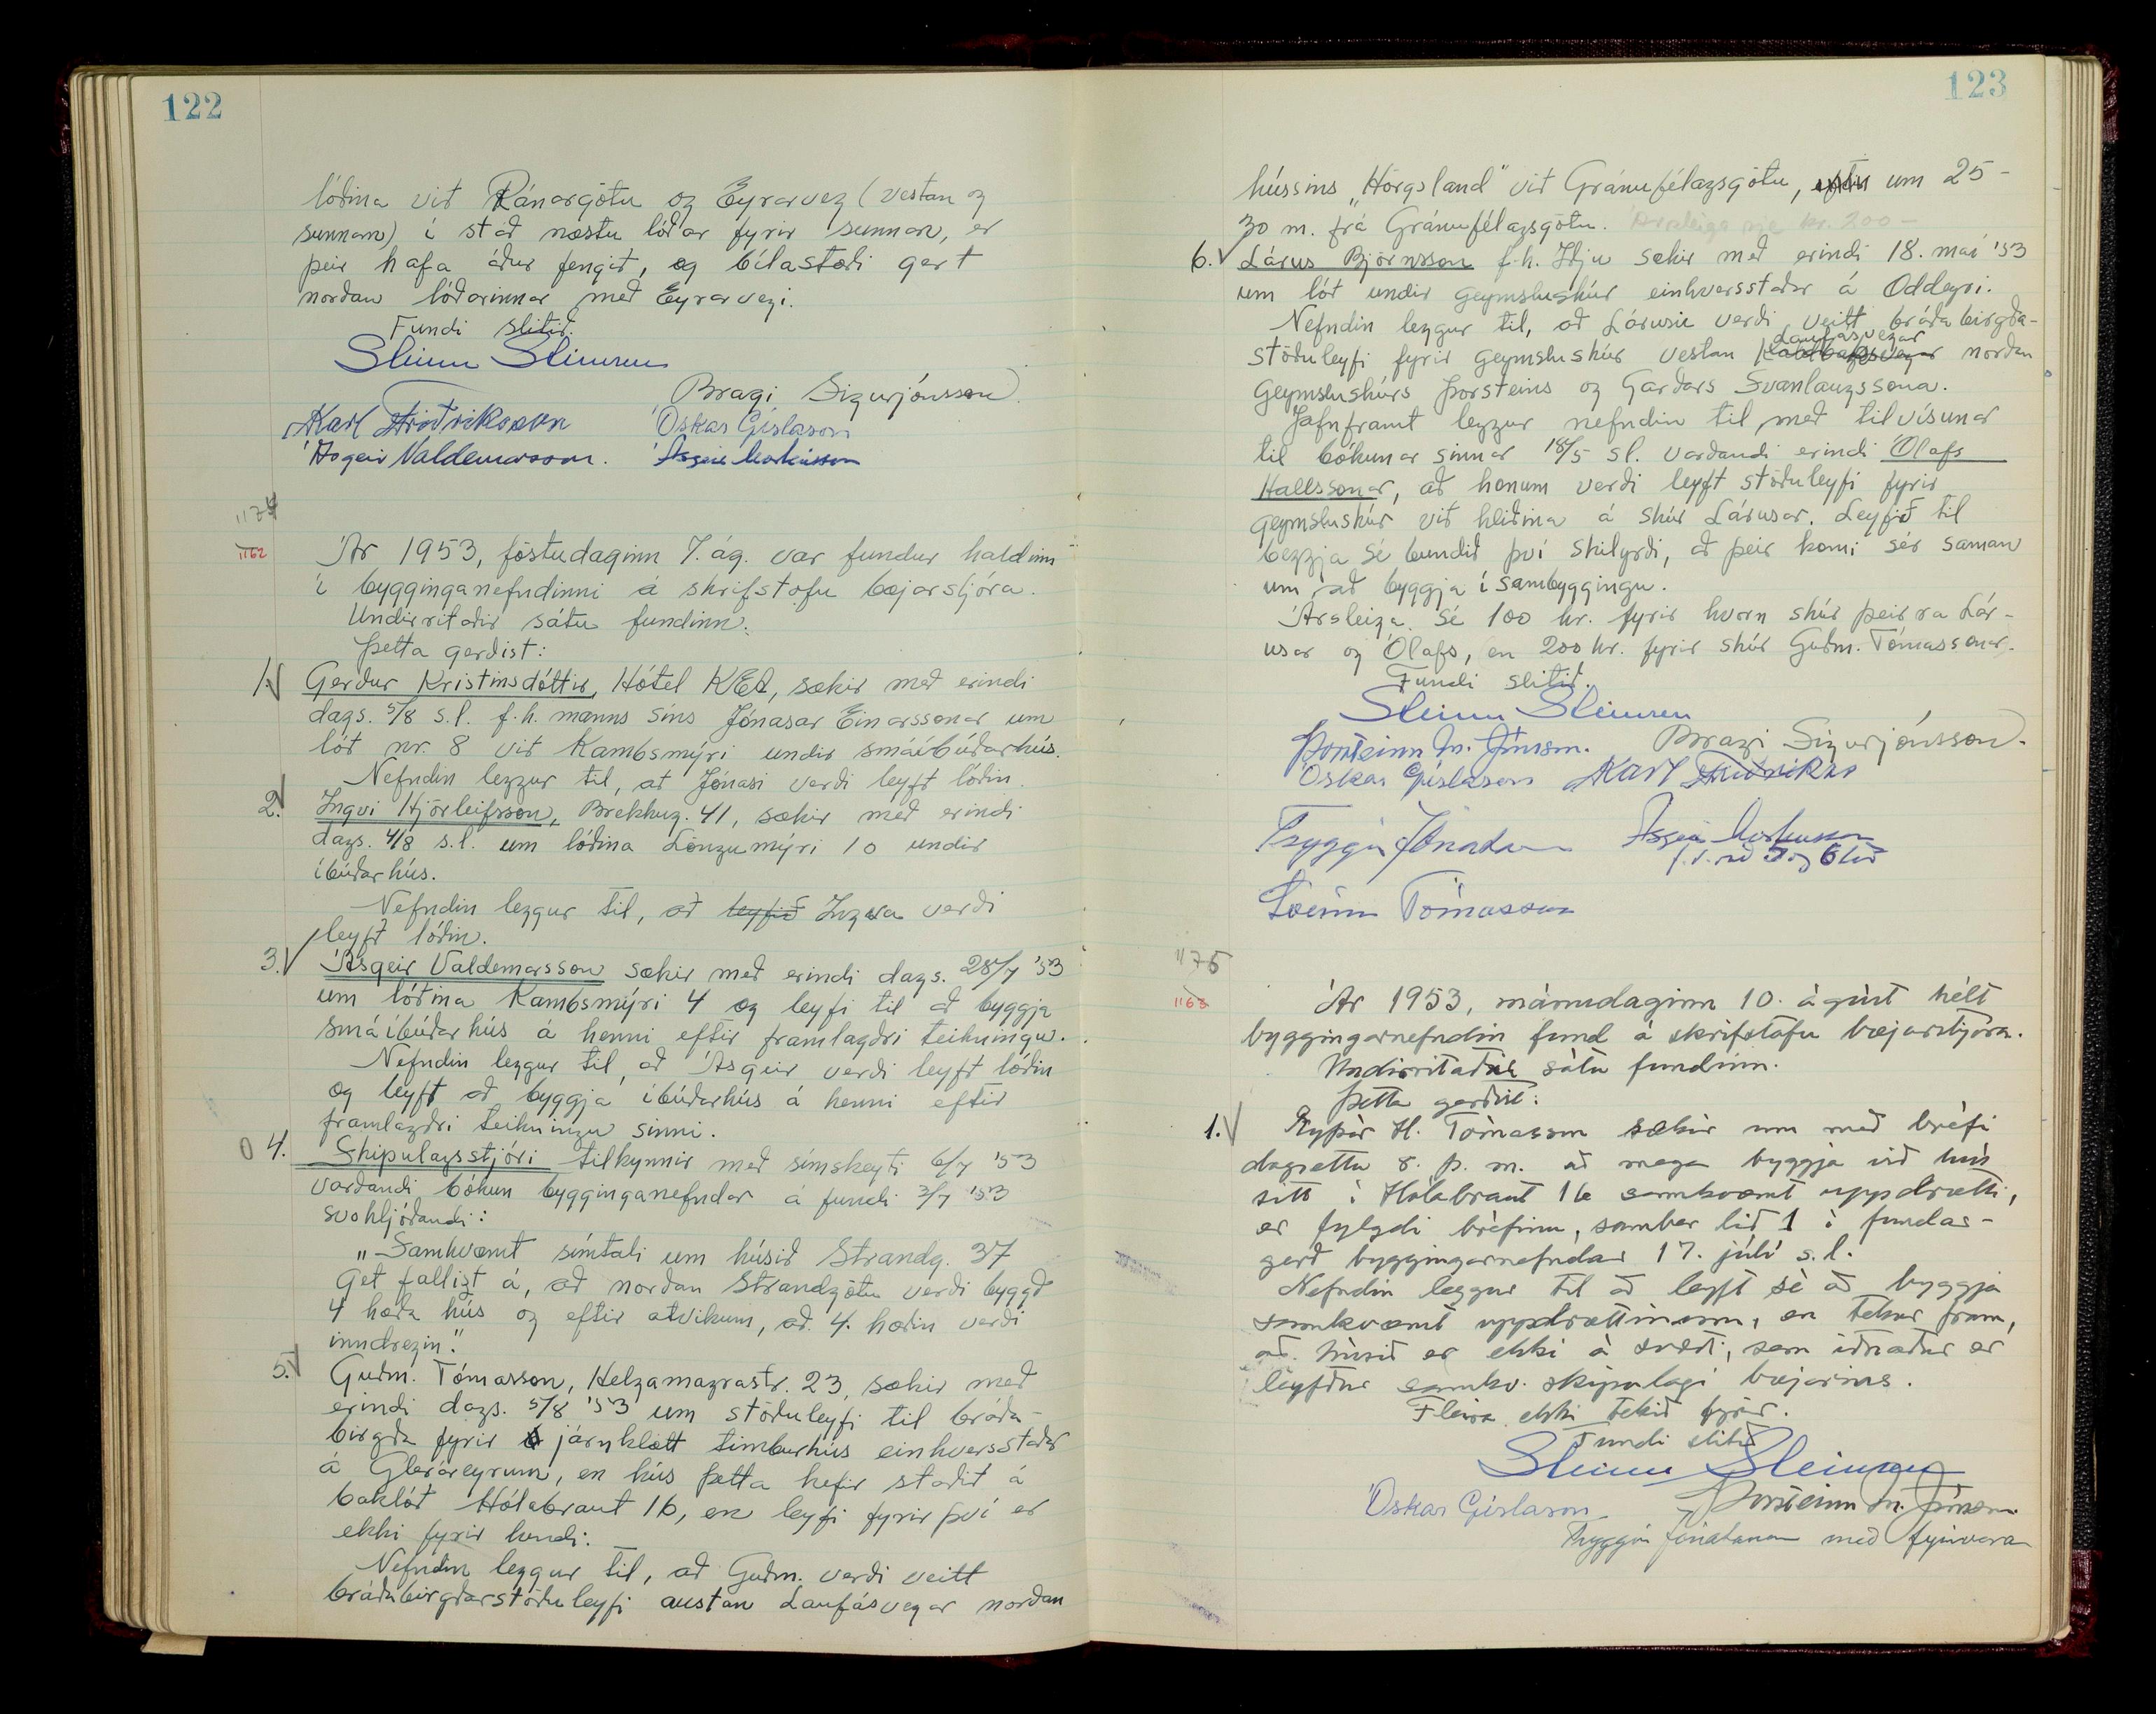 122
lóðina við Ránargötu og Eyrarveg (vestan og
sunnan) í stað næstu lóðar fyrir sunnan, er
þeir hafa áður fengið, og bílastæði gert
norðan lóðarinnar með Eyrarvegi.
Fundi slitið.
Steinn Steinsen
Bragi Sigurjónsson
Karl Friðriksson Óskar Gíslason
Ásgeir Valdemarsson. Ásgeir Markússon
1174
1162
Ár 1953, föstudaginn 7. ág. var fundur haldinn
í bygginganefndinni á skrifstofu bæjarstjóra.
Undirritaðir sátu fundinn.
Þetta gerðist:
1. Gerður Kristinsdóttir, Hótel KEA, sækir með erindi
dags. 5/8 s.l. f.h. manns síns Jónasar Einarssonar um
lóð nr. 8 við Kambsmýri undir smáíbúðarhús.
Nefndin leggur til, að Jónasi verði leyft lóðin.
2. Ingvi Hjörleifsson, Brekkug. 41, sækir með erindi
dags. 4/8 s.l. um lóðina Löngumýri 10 undir
íbúðarhús.
Nefndin leggur til, að leyfið Ingva verði
leyft lóðin.
3. Ásgeir Valdemarsson sækir með erindi dags. 28/7 '53
um lóðina Kambsmýri 4 og leyfi til að byggja
smáíbúðarhús á henni eftir framlagðri teikningu.
Nefndin leggur til, að Ásgeir verði leyft lóðin
og leyft að byggja íbúðarhús á henni eftir
framlagðri teikningu sinni.
0 4. Skipulagsstjóri tilkynnir með símskeyti 6/7 '53
varðandi bókun bygginganefndar á fundi 3/7 '53
svohljóðandi:
„Samkvæmt símtali um húsið Strandg. 37
get fallizt á, að norðan Strandgötu verði byggð
4 hæða hús og eftir atvikum, að 4. hæðin verði
inndregin."
5. Guðm. Tómasson, Helgamagrastr. 23, sækir með
erindi dags. 5/8 '53 um stöðuleyfi til bráða-
birgða fyrir járnklætt timburhús einhversstaðar
á Gleráreyrum, en hús þetta hefir staðið á
baklóð Hólabraut 16, en leyfi fyrir því er
ekki fyrir hendi.
Nefndin leggur til, að Guðm. verði veitt
bráðabirgðarstöðuleyfi austan Laufásvegar norðan
123
hússins „Hörgsland" við Gránufélagsgötu, um 25-
30 m. frá Gránufélagsgötu. Ársleiga sje kr. 200-
6. Lárus Björnsson f.h. Iðju sækir með erindi 18. maí '53
um lóð undir geymsluskúr einhversstaðar á Oddeyri.
Nefndin leggur til, að Lárusi verði veitt bráðabirgða-
Laufásvegar
stöðuleyfi fyrir geymsluskúr vestan Kaldbaksvegar norðan
geymsluskúrs Þorsteins og Garðars Svanlaugssona.
Jafnframt leggur nefndin til með tilvísunar
til bókunar sinnar 18/5 sl. varðandi erindi Ólafs
Hallssonar, að honum verði leyft stöðuleyfi fyrir
geymsluskúr við hliðina á skúr Lárusar. Leyfið til
beggja sé bundið því skilyrði, að þeir komi sér saman
um að byggja í sambyggingu.
Ársleiga sé 100 kr. fyrir hvorn skúr þeirra Lár-
usar og Ólafs, en 200 kr. fyrir skúr Guðm. Tómassonar.
Fundi slitið.
Steinn Steinsen
Þorsteinn M. Jónsson. Bragi Sigurjónsson.
Óskar Gíslason Karl Friðriks
Tryggvi Jónatansson Ásgeir Markússon
Tómasson
1175
1163
Ár 1953, mánudaginn 10. ágúst hélt
byggingarnefndin fund á skrifstofu bæjarstjóra.
Undirritaðir sátu fundinn.
Þetta gerðist:
1. Eyþór H. Tómasson sækir um með bréfi
dagsettu 8. þ.m. að mega byggja við hús
sitt í Hólabraut 16 samkvæmt uppdrætti,
er fylgdi bréfinu, samber lið 1 í fundar-
gerð byggingarnefndar 17. júlí s.l.
Nefndin leggur til að leyft sé að byggja
samkvæmt uppdrættinum, en tekur fram,
að húsið er ekki á svæði, sem iðnaður er
leyfður samkv. skipulagi bæjarins.
Fleira ekki tekið fyrir.
Fundi slitið
Steinn Steinsen
Óskar Gíslason Þorsteinn M. Jónsson
Tryggvi Jónatansson með fyrirvara